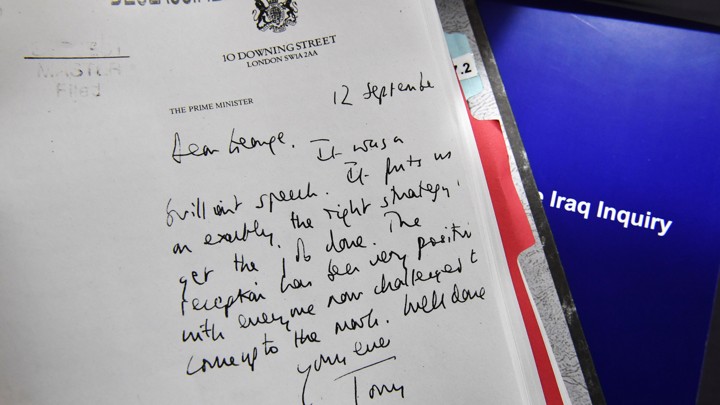 DECLASSIFIED
10 DOWNING STREET
LONDON SW1A 2AA
THE PRIME MINISTER
12 September
Dear George.
It was a
brilliant speech. It puts us
on exactly the right strategy to
get the job done. The
reception has been very positive
with everyone now challenged to
come up to the mark. Well done
Yours ever
Tony
7.2
Iraq Inquiry
Filed